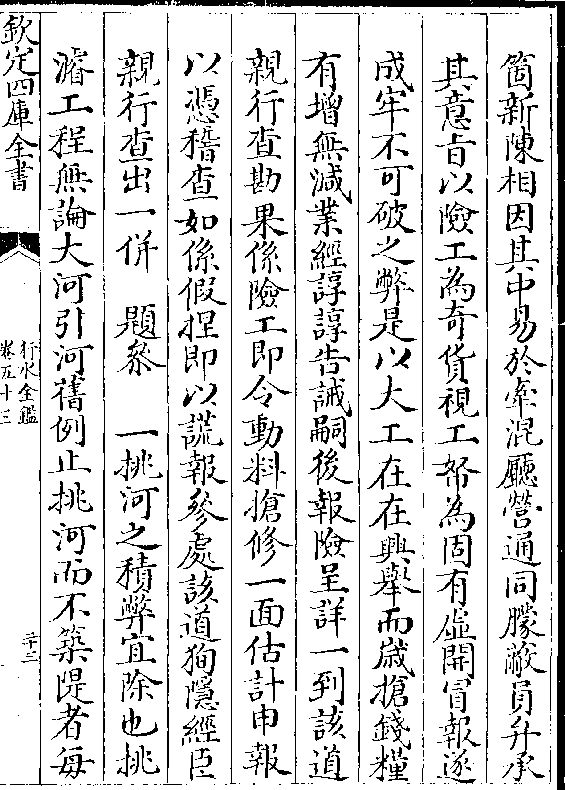 箇新陳相因其中易於牽混廳營通同朦蔽員弁承
其意㫖以險工為竒貨視工帑為固有虚開冒報遂
成牢不可破之弊是以大工在在興舉而歲搶錢糧
有增無减業經諄諄告誡嗣後報險呈詳一到該道
親行查勘果係險工即令動料搶修一面估計申報
以憑稽查如係假捏即以謊報參處該道狥隱經臣
親行查出一併　題叅　一挑河之積弊宜除也挑
濬工程無論大河引河舊例止挑河而不築隄者每
欽定四庫全書
行水金鑑
卷五十三
二十三